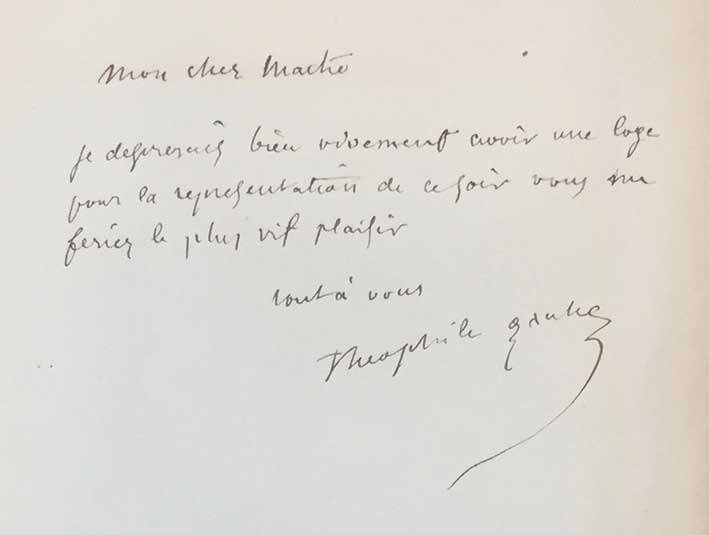 Mon cher Maitre
je desirerais bien vivement avoir une loge
pour la representation de ce soir vous me
feriez le plus vif plaisir
tout à vous
Theophile Gautier